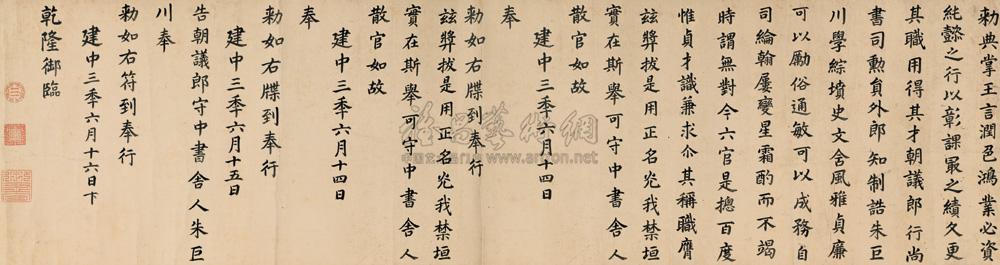 勑典掌王言潤色鴻業必資
純懿之行以彰課最之績久更
其職用得其才朝議郎行尚
書司勳員外郎知制誥朱巨
川學綜墳史文含風雅貞廉
可以勵俗通敏可以成務自
司綸翰屢變星霜酌而不竭
時謂無對今六官是揔百度
惟貞才識兼求尒其稱職膺
玆奬拔是用正名光我禁垣
實在斯舉可守中書舍人
散官如故
建中三秊六月十四日
奉
勑如右牒到奉行
玆奬拔是用正名光我禁垣
實在斯舉可守中書舍人
散官如故
建中三秊六月十四日
奉
勑如右牒到奉行
建中三秊六月十五日
告朝議郎守中書舍人朱巨
川奉
勑如右符到奉行
建中三秊六月十六日下
乾隆御臨
雅昌藝術網
www.artron.net